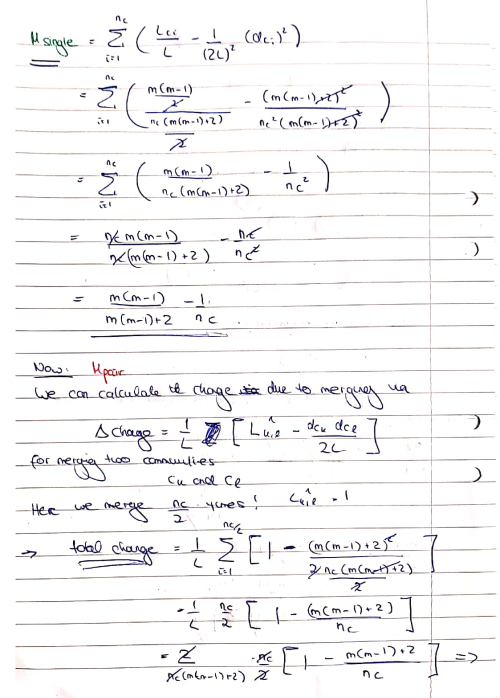 M single = Σ_{i=1}^{nc} ( Lci/L - 1/(2L)² (dci)² )
= Σ_{i=1}^{nc} ( (m(m-1)/2) / (nc(m(m-1)+2)/2) - (m(m-1)+2)² / (nc²(m(m-1)+2)²) )
= Σ_{i=1}^{nc} ( m(m-1) / (nc(m(m-1)+2)) - 1/nc² )
= nc m(m-1) / (nc(m(m-1)+2)) - nc/nc²
= m(m-1) / (m(m-1)+2) - 1/nc .
Now: Mpair
We can calculate change due to merging via
Δ Change = 1/L [ L̂k,l - dck dcl / 2L ]
for merging two communities
Ck and Cl
Here we merge nc/2 times! L̂k,l = 1
→ total change = 1/L Σ_{i=1}^{nc/2} [ 1 - (m(m-1)+2)² / (2 nc(m(m-1)+2)/2) ]
= 1/L nc/2 [ 1 - (m(m-1)+2) / nc ]
= 2 / (nc(m(m-1)+2)) · nc/2 [ 1 - m(m-1)+2 / nc ] =>